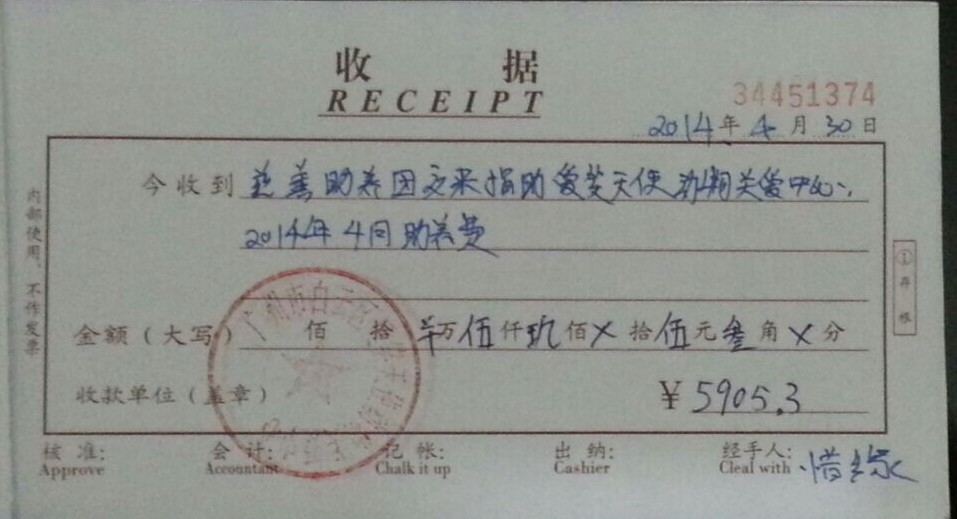 收 据
RECEIPT
34451374
2014年 4 月 30 日
今收到 慈善助养团交来捐助爱艾天使动期关爱中心
2014年4月助养费
金额(大写) 佰 拾 万 伍仟玖佰X拾伍元叁角X分
收款单位(盖章) ¥5905.3
核准: 会计: 记帐: 出纳: 经手人: 惜缘
Approve Accountant Chalk it up Cashier Cleal with
内部使用、不作发票
①存根
广州市白云区